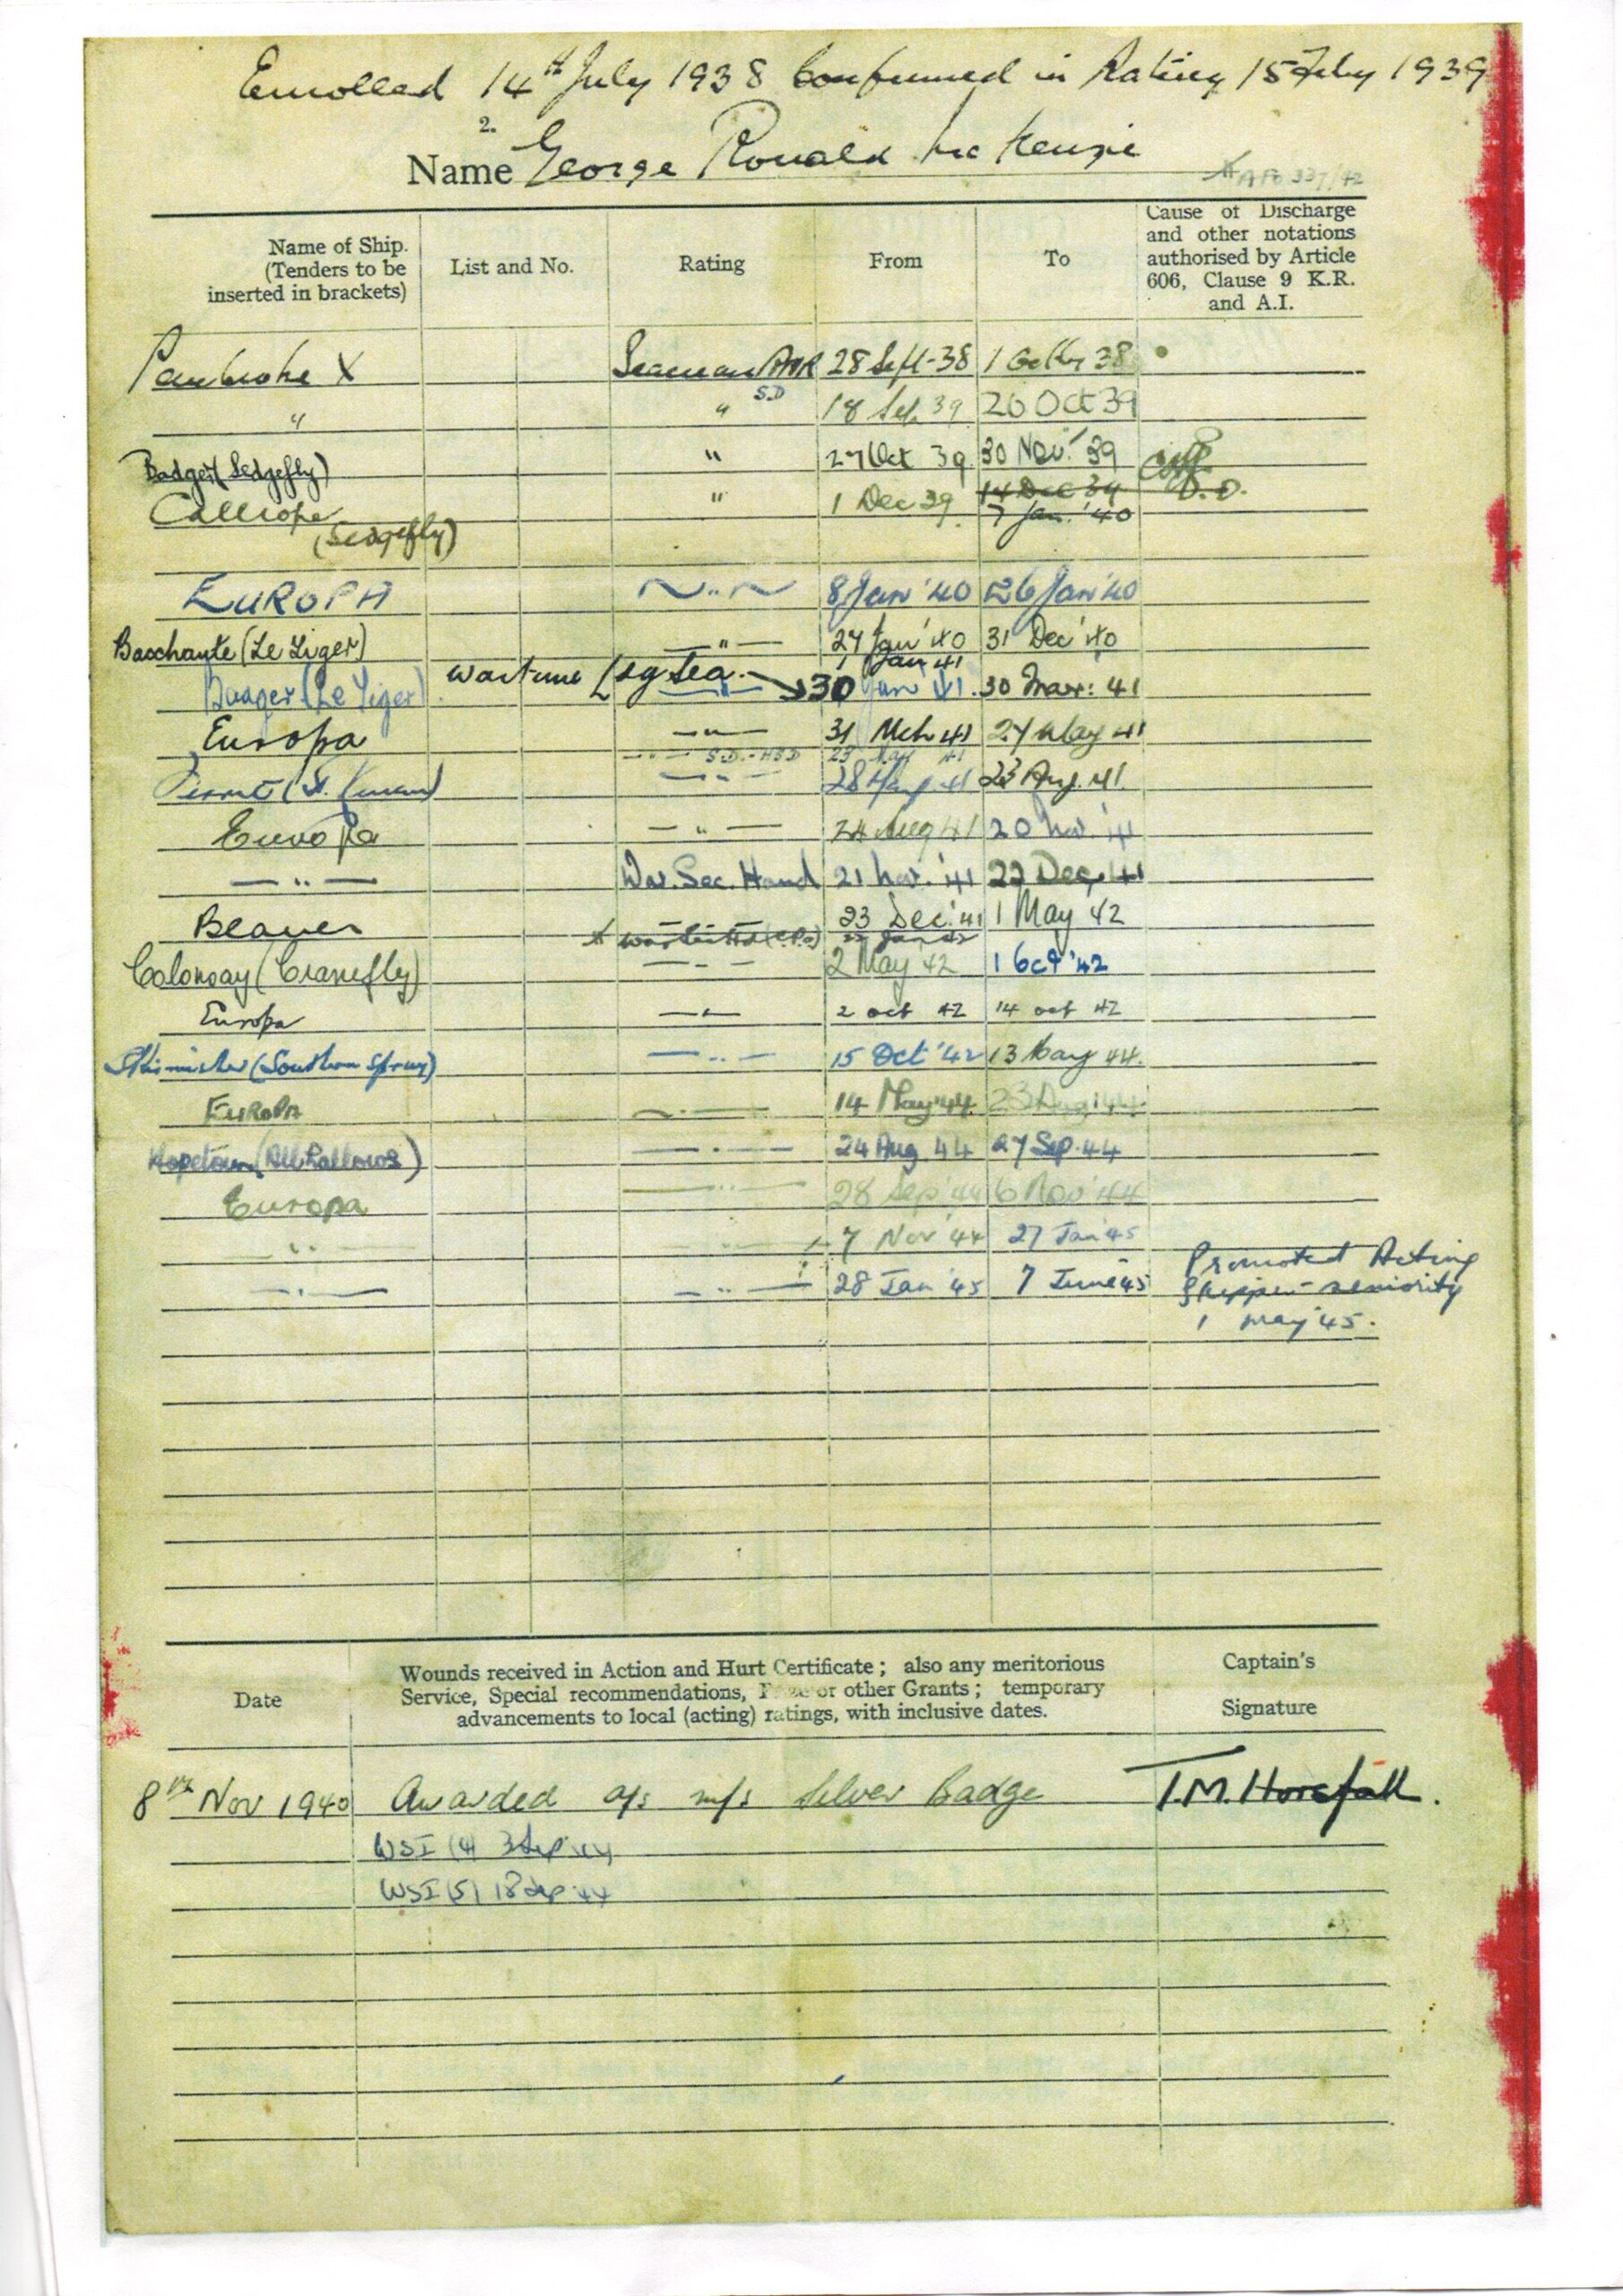 Enrolled 14th July 1938 Confirmed in Rating 15 Feby 1939
2.
Name George Ronald McKenzie
AFO 337/42
Name of Ship. (Tenders to be inserted in brackets) List and No. Rating From To Cause of Discharge and other notations authorised by Article 606, Clause 9 K.R. and A.I.
Pembroke X Seaman 28 Sept-38 1 Octbr 38
" " S.D 18 Sep 39 26 Oct 39
Badger (Sedgefly) " 27 Oct 39 30 Nov. 39
Calliope (Sedgefly) " 1 Dec 39 14 Dec 39 D.D.
7 Jan. '40
EUROPA " 8 Jan '40 26 Jan '40
Bacchante (Le Tiger) " 27 Jan '40 31 Dec '40
1 Jan 41
Badger (Le Tiger) Wartime Ldg Sea. " 30 Jan 41. 30 Mar: 41
Europa " 31 Mch 41 27 May 41
" S.D. - HSD 23 41
" 28 May 41 23 Aug. 41.
Europa " 24 Aug 41 20 Nov. 41
" War. Sec. Hand 21 Nov. '41 22 Dec. 41
Beaver 23 Dec. '41 1 May 42
Colonsay (Cranefly) " 2 May '42 1 Oct '42
Europa " 2 oct 42 14 oct 42
Skirmisher (Southern Spray) " 15 Oct '42 13 May 44.
EUROPA " 14 May '44. 23 Aug '44
Hopetoun (Allhallows) " 24 Aug 44 27 Sep. 44
Europa " 28 Sep '44 6 Nov '44
" " 7 Nov '44 27 Jan '45
" " 28 Jan '45 7 June 45 Promoted Acting
Skipper - seniority
1 May '45.
Date Wounds received in Action and Hurt Certificate; also any meritorious Service, Special recommendations, or other Grants; temporary advancements to local (acting) ratings, with inclusive dates. Captain's Signature
8th Nov 1940 Awarded a/s m/s Silver Badge T.M. Horsfall.
WSI (4) 3 Sep 44
WSI (5) 18 Sep 44